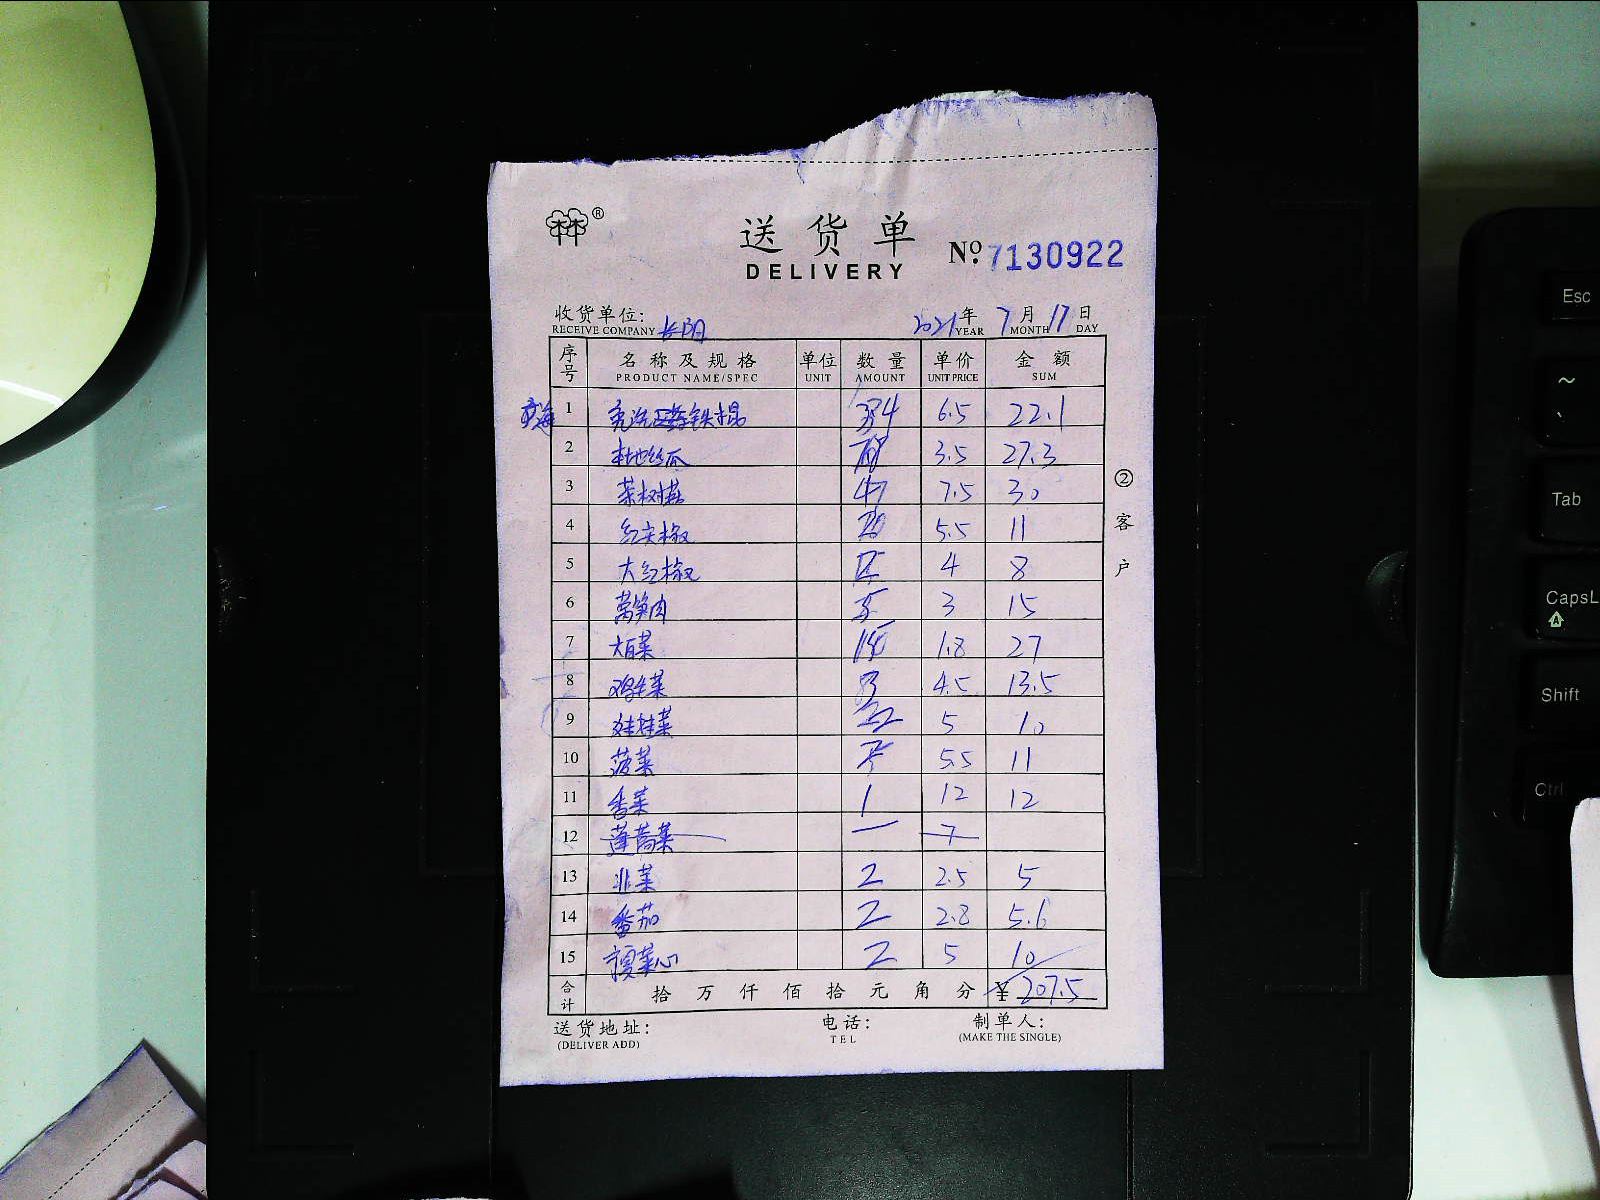 ®
送货单
DELIVERY
No. 7130922
收货单位: 长阳 2021年 7月 17日
RECEIVE COMPANY YEAR MONTH DAY
序号 名称及规格 单位 数量 单价 金额
PRODUCT NAME/SPEC UNIT AMOUNT UNIT PRICE SUM
1 铁棍 6.5 22.1
2 本地丝瓜 3.5 27.3
3 茶树菇 7.5 30
4 红尖椒 5.5 11
5 大红椒 4 8
6 莴笋肉 3 15
7 大白菜 1.8 27
8 鸡毛菜 3 4.5 13.5
9 娃娃菜 2 5 10
10 菠菜 5.5 11
11 香菜 1 12 12
12 蓬蒿菜 一 7
13 韭菜 2 2.5 5
14 番茄 2 2.8 5.6
15 菜心 2 5 10
合计 拾万仟佰拾元角分 ¥ 207.5
② 客户
送货地址: 电话: 制单人:
(DELIVER ADD) TEL (MAKE THE SINGLE)
Esc
~
Tab
CapsL
Shift
Ctrl